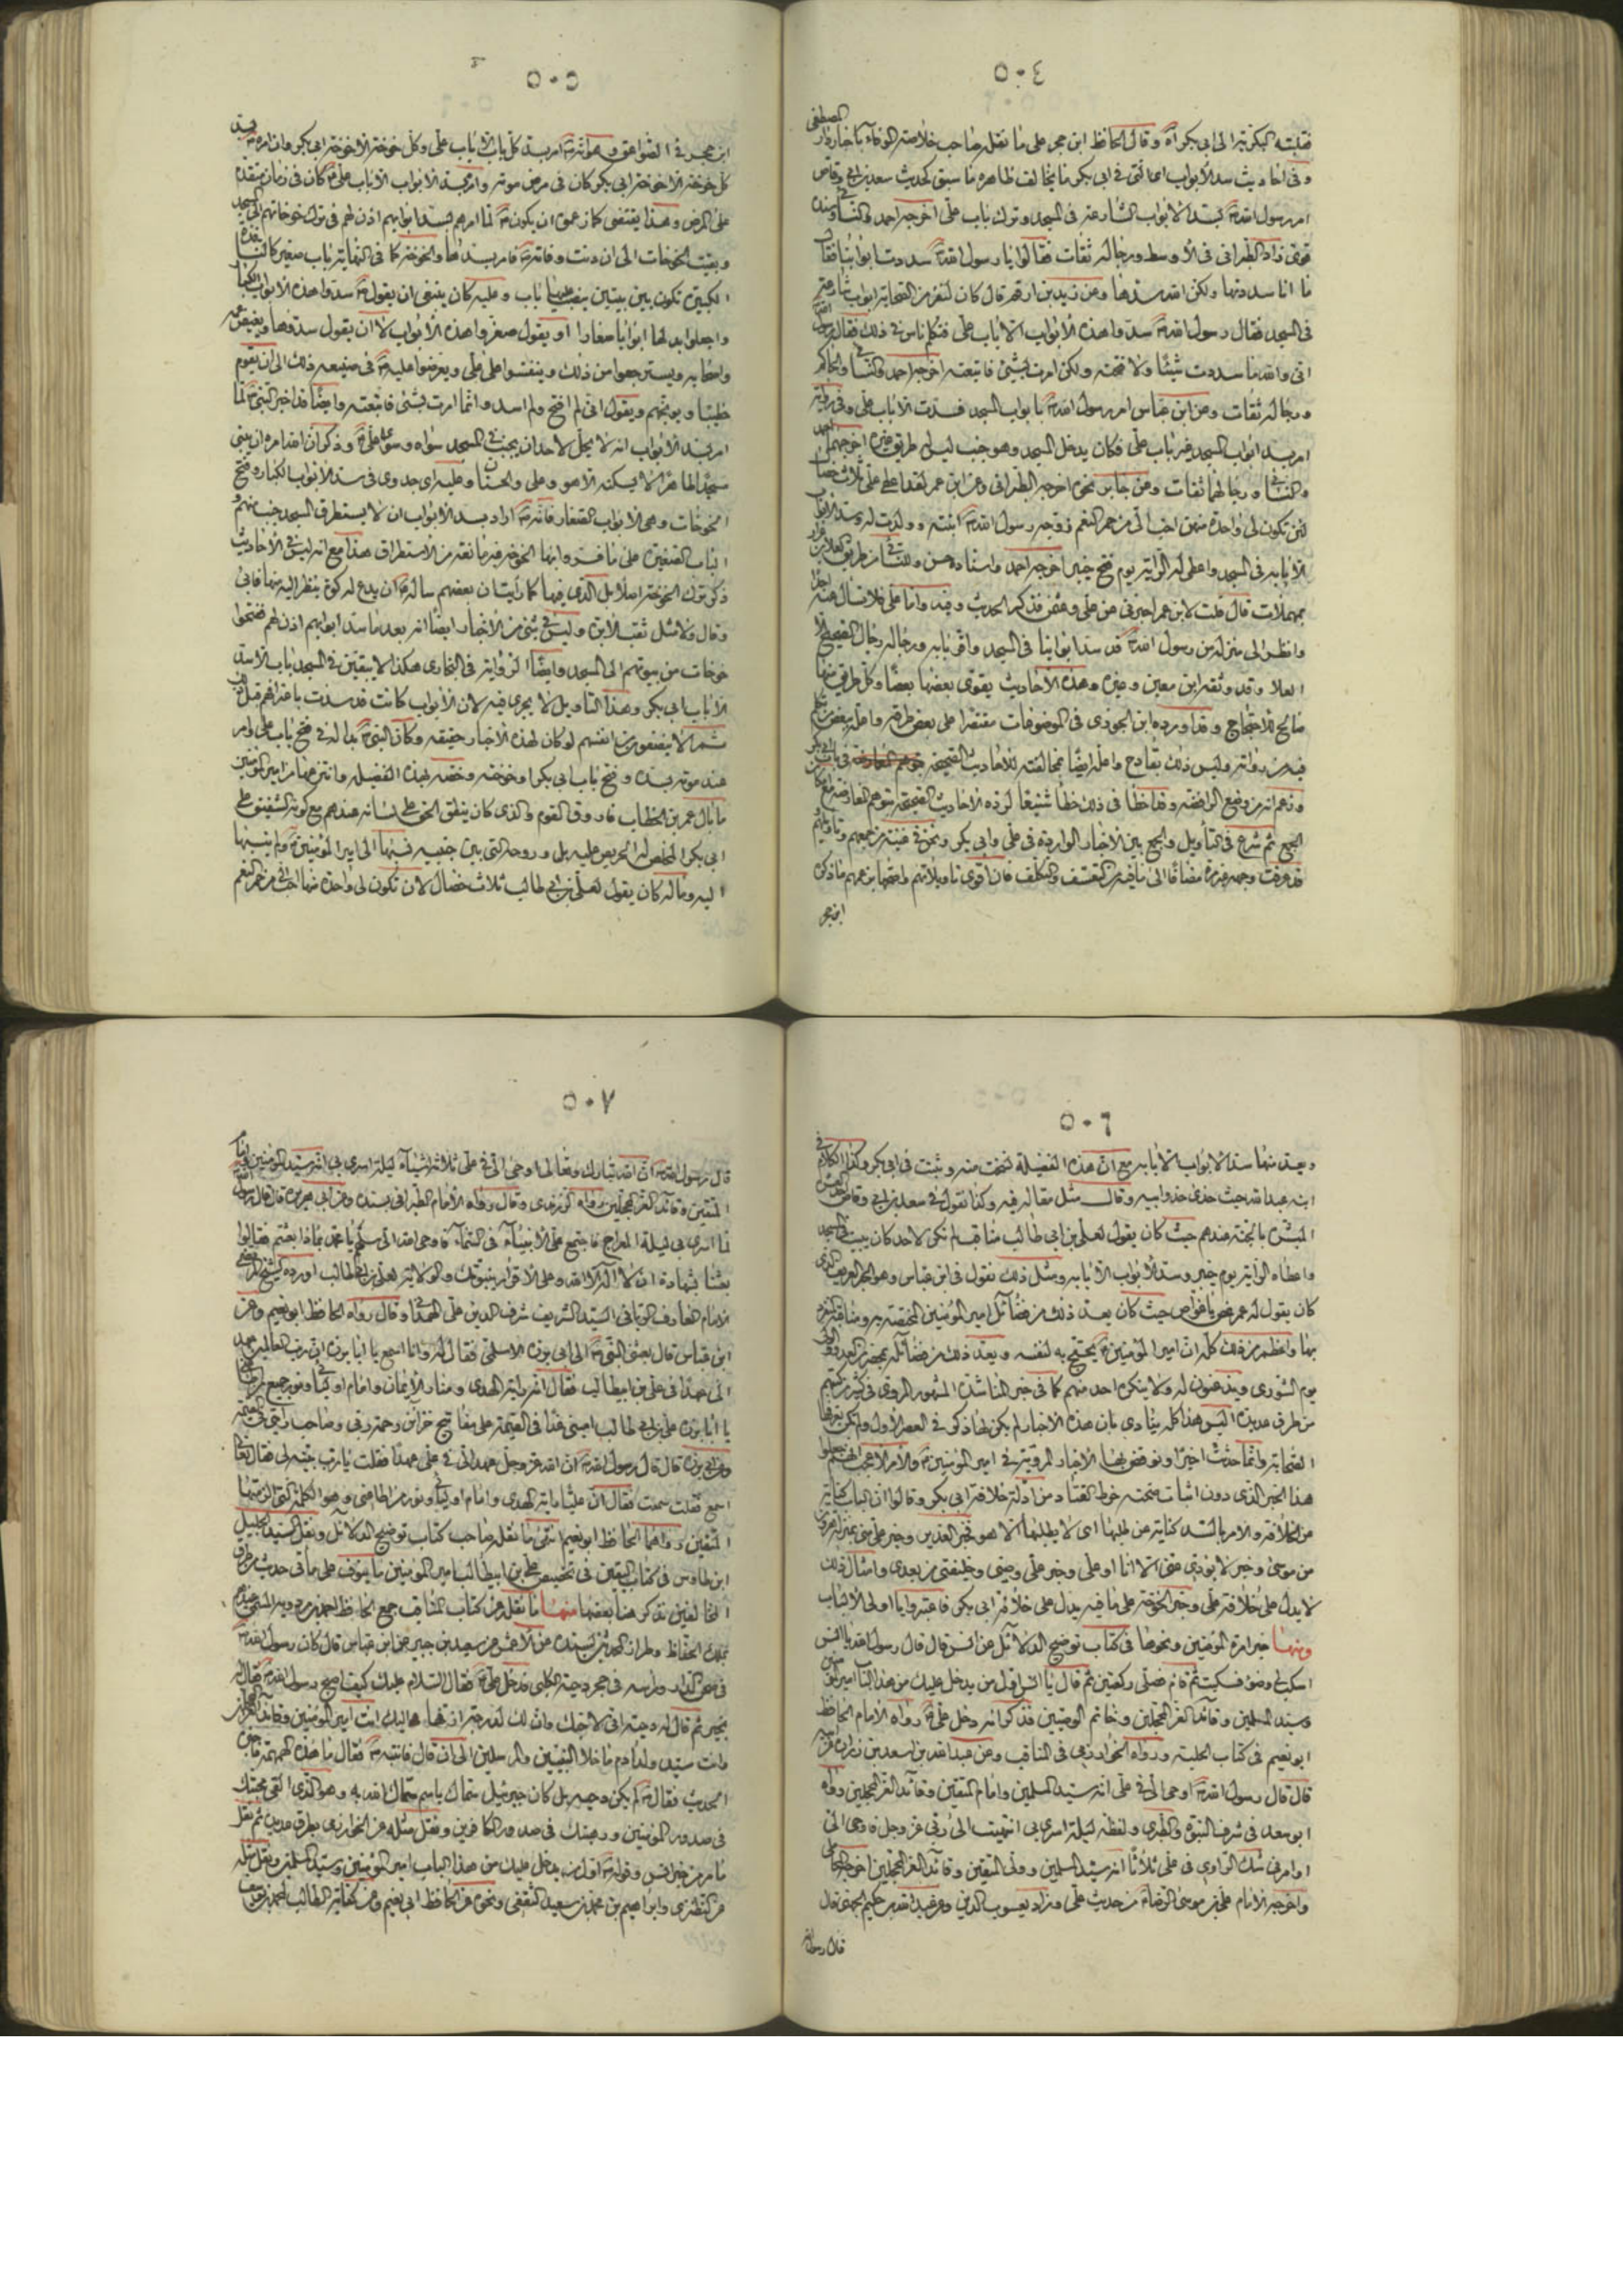 ٥٠٤
فقلبته البكرية الى ابي بكر آه وقال الحافظ ابن حجر على ما نقله صاحب خلاصة الوفاء باخبار دار المصطفى
وفي احاديث سد الابواب اما التي في ابي بكر ما يخالف ظاهره ما سبق كحديث سعد بن ابي وقاص
امر رسول الله ص بسد الابواب الشارعة في المسجد وترك باب علي اخرجه احمد والنسائي وسنده
قوي زاد الطبراني في الاوسط ورجاله ثقات فقالوا يا رسول الله سددت ابوابنا فقال
ما انا سددتها ولكن الله سدها وعن زيد بن ارقم قال كان لنفر من الصحابة ابواب شارعة
في المسجد فقال رسول الله ص سدوا هذه الابواب الا باب علي فتكلم ناس في ذلك فقال رسول الله
اني والله ما سددت شيئا ولا فتحته ولكن امرت بشئ فاتبعته اخرجه احمد والنسائي والحاكم
ورجاله ثقات وعن ابن عباس امر رسول الله ص بابواب المسجد فسدت الا باب علي وفي رواية
امر بسد ابواب المسجد غير باب علي فكان يدخل المسجد وهو جنب ليس له طريق غيره اخرجهما احمد
والنسائي ورجالهما ثقات وعن جابر نحوه اخرجه الطبراني وعن ابن عمر لقد اعطي علي ثلاث خصال
لئن تكون لي واحدة منهن احب الي من حمر النعم زوجه رسول الله ص ابنته وولدت له وسد الابواب
الا بابه في المسجد واعطاه الراية يوم فتح خيبر اخرجه احمد واسناده حسن وللنسائي من طريق العلاء بن عرار
بمهملات قال قلت لابن عمر اخبرني عن علي وعثمان فذكر الحديث وفيه واما علي فلا تسأل عنه احدا
وانظر الى منزله من رسول الله ص قد سد ابوابنا في المسجد واقر بابه ورجاله رجال الصحيح الا
العلا وقد وثقه ابن معين وغيره وهذه الاحاديث يقوي بعضها بعضا وكل طريق منها
صالح للاحتجاج وقد اورده ابن الجوزي في الموضوعات مقتصرا على بعض طرقه واعله ببعض من تكلم
فيه من رواته وليس ذلك بقادح واعله ايضا بمخالفته للاحاديث الصحيحة في باب ابي بكر
وزعم انه من وضع الرافضة وقد اخطأ في ذلك خطأ شنيعا لرده الاحاديث الصحيحة بتوهم المعارضة مع امكان
الجمع ثم شرع في التأويل والجمع بين الاخبار الواردة في علي وابي بكر ونحن في غنية من جمعهم وتاويلهم
قد عرفت وجهه غير مرة مضافا الى ما فيه من التعسف والتكلف فان اقوى تاويلاتهم واضحها عندهم ما ذكره
ابن حجر
٥٠٥
ابن حجر في الصواعق وهو انه ص امر بسد كل باب الا باب علي وكل خوخة الا خوخة ابي بكر وان امره بسد
كل خوخة الا خوخة ابي بكر كان في مرض موته وامره بسد الابواب الا باب علي كان في زمان متقدم
على المرض وهذا يقتضي كما زعموا ان يكون ص لما امرهم بسد ابوابهم اذن لهم في ترك خوخاتهم الى المسجد
وبقيت الخوخات الى ان دنت وفاته ص فامر بسدها والخوخة كما في النهاية باب صغير كالنافذة
الكبيرة تكون بين بيتين ينصب عليها باب وعليه كان ينبغي ان يقول ص سدوا هذه الابواب الكبار
واجعلوا بدلها ابوابا صغارا او يقول صغروا هذه الابواب لا ان يقول سدوها ويغضب عمه
واصحابه ويسترجعوا من ذلك وينفسوا على علي ويعرضوا عليه ص في صنيعه ذلك الى ان يقوم
خطيبا ويوبخهم ويقول اني لم افتح ولم اسد وانما امرت بشئ فاتبعته وايضا قد اخبر النبي ص لما
امر بسد الابواب انه لا يحل لاحد ان يجنب في المسجد سواه وسوى علي وذكر ان الله امره ان يبني
مسجدا طاهرا لا يسكنه الا هو وعلي والحسنان وعليه اي جدوى في سد الابواب الكبار وفتح
الخوخات وهي الابواب الصغار فانه ص اراد بسد الابواب ان لا يستطرق المسجد جنب منهم و
الباب الصغير على ما فسروا بها الخوخة فيه ما نقه من الاستطراق هذا مع انه ليس في الاحاديث
ذكر ترك الخوخة اصلا بل الذي فيها كما رأيت ان بعضهم ساله ص ان يدع له كوة ينظر اليه منها فابى
وقال ولا مثل ثقب الابرة وليس في شئ من الاخبار ايضا انه بعد ما سد ابوابهم اذن لهم ففتحوا
خوخات من بيوتهم الى المسجد وايضا الرواية في البخاري هكذا لا يبقين في المسجد باب الا سد
الا باب ابي بكر وهذا التاويل لا يجري فيه لان الابواب كانت قد سدت باعترافهم قبل
عند موته بسده وفتح باب ابي بكر او خوخته وخصه بهذه الفضيلة وانتزعها من امير المؤمنين
ما بال عمر بن الخطاب فاروق القوم والذي كان ينطق الحق على لسانه عندهم مع كونه الشفيق على
ابي بكر المخلص له الحريص عليه بل وروحه التي بين جنبيه نسبها الى امير المؤمنين ع ولم ينسبها
اليه وما له كان يقول لعلي بن ابي طالب ثلاث خصال لان تكون لي واحدة منها احب الي من حمر النعم
٥٠٦
وعد منها سد الابواب الا بابه مع ان هذه الفضيلة نسخت منه وثبت في ابي بكر وكذا الكلام في
ابنه عبد الله حيث حذى حذو ابيه وقال مثل مقاله فيه وكذا نقول في سعد بن ابي وقاص
المبشر بالجنة عندهم حيث كان يقول لعلي بن ابي طالب مناقب لم تكن لاحد كان يبيت في المسجد
واعطاه الراية يوم خيبر وسد الابواب الا بابه ومثل ذلك نقول في ابن عباس وهو الحبر العريف الذي
كان يقول له عمر غص يا غواص حيث كان يعد ذلك من فضائل امير المؤمنين المختصة به ومناقبه المتفرد
بها واعظم من ذلك كله ان امير المؤمنين ع يحتج به لنفسه ويعد ذلك من فضائله بمحضر من
يوم الشورى ويذعنون له ولا ينكره احد منهم كما في خبر المناشدة المشهور المروي في كثير من كتبهم
من طرق عديدة اليس هذا كله ينادي بان هذه الاخبار لم يكن لها ذكر في العصر الاول ولم تكن يعرفها
الصحابة وانما حدثت اخيرا ونوقض بها الاخبار المروية في امير المؤمنين ع والامر الاعجب انهم جعلوا
هذا الخبر الذي دون اثبات صحته خرط القتاد من ادلة خلافة ابي بكر وقالوا ان الباب كناية
عن الخلافة والامر بالسد كناية عن طلبها اي لا يطلبها الا هو فخبر الغدير وخبر علي مني بمنزلة هارون
من موسى وخبر لا يؤدي عني الا انا او علي وخبر علي وصيي وخليفتي من بعدي وامثال ذلك
لا يدل على خلافة علي وخبر الخوخة على ما فيه يدل على خلافة ابي بكر فاعتبروا يا اولي الالباب
ومنها خبر امرة المؤمنين ونحوها في كتاب توضيح الدلائل عن انس قال قال رسول الله يا انس
اسكب لي وضوء فسكبت ثم قام فصلى ركعتين ثم قال يا انس اول من يدخل عليك من هذا الباب امير المؤمنين
وسيد المسلمين وقائد الغر المحجلين وخاتم الوصيين فذكر انه دخل علي ع رواه الامام الحافظ
ابو نعيم في كتاب الحلية ورواه الخوارزمي في المناقب وعن عبد الله بن اسعد بن زرارة
قال قال رسول الله ص اوحي الي في علي انه سيد المسلمين وامام المتقين وقائد الغر المحجلين رواه
ابو سعد في شرف النبوة والطبري ولفظه ليلة اسري بي انتهيت الى ربي عز وجل فاوحى الي
او امرني شك الراوي في علي ثلاثا انه سيد المسلمين وولي المتقين وقائد الغر المحجلين اخرجه المحاملي
واخرجه الامام علي بن موسى الرضا من حديث علي وزاد يعسوب الدين وعن عبد الله بن حكيم الجهني قال
قال رسول الله
٥٠٧
قال رسول الله ص ان الله تبارك وتعالى اوحى الي في علي ثلاثة اشياء ليلة اسري بي انه سيد المؤمنين وامام
المتقين وقائد الغر المحجلين رواه الزرندي وقال رواه الامام الطبراني بسنده وعن ابي هريرة قال قال رسول الله
لما اسري بي ليلة المعراج فاجتمع علي الانبياء في السماء فاوحى الله الي سلهم يا محمد بماذا بعثتم فقالوا
بعثنا بشهادة ان لا اله الا الله وعلى الاقرار بنبوتك والولاية لعلي بن ابي طالب اورده الشيخ المرتضى
الامام العارف الرباني السيد الشريف شرف الدين علي الهمداني وقال رواه الحافظ ابو نعيم وعن
ابن عباس قال بعثني النبي ص الى ابي برزة الاسلمي فقال له وانا اسمع يا ابا برزة ان رب العالمين عهد
الي عهدا في علي بن ابيطالب فقال انه راية الهدى ومنار الايمان وامام اوليائي ونور جميع من اطاعني
يا ابا برزة علي بن ابي طالب اميني غدا في القيمة على مفاتيح خزائن رحمة ربي وصاحب رايتي في القيمة
وعن ابي برزة قال قال رسول الله ص ان الله عز وجل عهد الي في علي عهدا فقلت يا رب بينه لي فقال تعالى
اسمع فقلت سمعت فقال ان عليا راية الهدى وامام اوليائي ونور من اطاعني وهو الكلمة التي الزمتها
المتقين رواهما الحافظ ابو نعيم انتهى ما نقله صاحب كتاب توضيح الدلائل ونقل السيد الجليل
ابن طاوس في كتاب اليقين في تخصيص علي بن ابيطالب بامير المؤمنين ما ينوف على مائتي حديث من طرق
المخالفين نذكر هنا بعضها منها ما نقله من كتاب المناقب جمع الحافظ احمد بن مردويه المسمى عندهم
بملك الحفاظ وطراز المحدثين بسنده عن الاعمش عن سعيد بن جبير عن ابن عباس قال كان رسول الله ص
في صحن الدار ورأسه في حجر دحية الكلبي فدخل علي ع فقال السلام عليك كيف اصبح رسول الله ص فقال له
بخير ثم قال له دحية اني لاحبك وان لك لمدحة ازفها اليك انت امير المؤمنين وقائد الغر المحجلين
وانت سيد ولد آدم ما خلا النبيين والمرسلين الى ان قال فانتبه ص فقال ما هذه الهمهمة فاخبره
الحديث فقال ص لم يكن دحية بل كان جبرئيل سماك باسم سماك الله به وهو الذي القى محبتك
في صدور المؤمنين ورهبتك في صدور الكافرين ونقل مثله عن الخوارزمي بطرق عديدة ثم نقل
ما مر من خبر انس وقوله ص اول من يدخل عليك من هذا الباب امير المؤمنين وسيد المسلمين ونقل مثله
عن النطنزي وابراهيم بن محمد بن سعيد الثقفي ونحوه عن الحافظ ابي نعيم وعن كفاية الطالب لمحمد بن يوسف